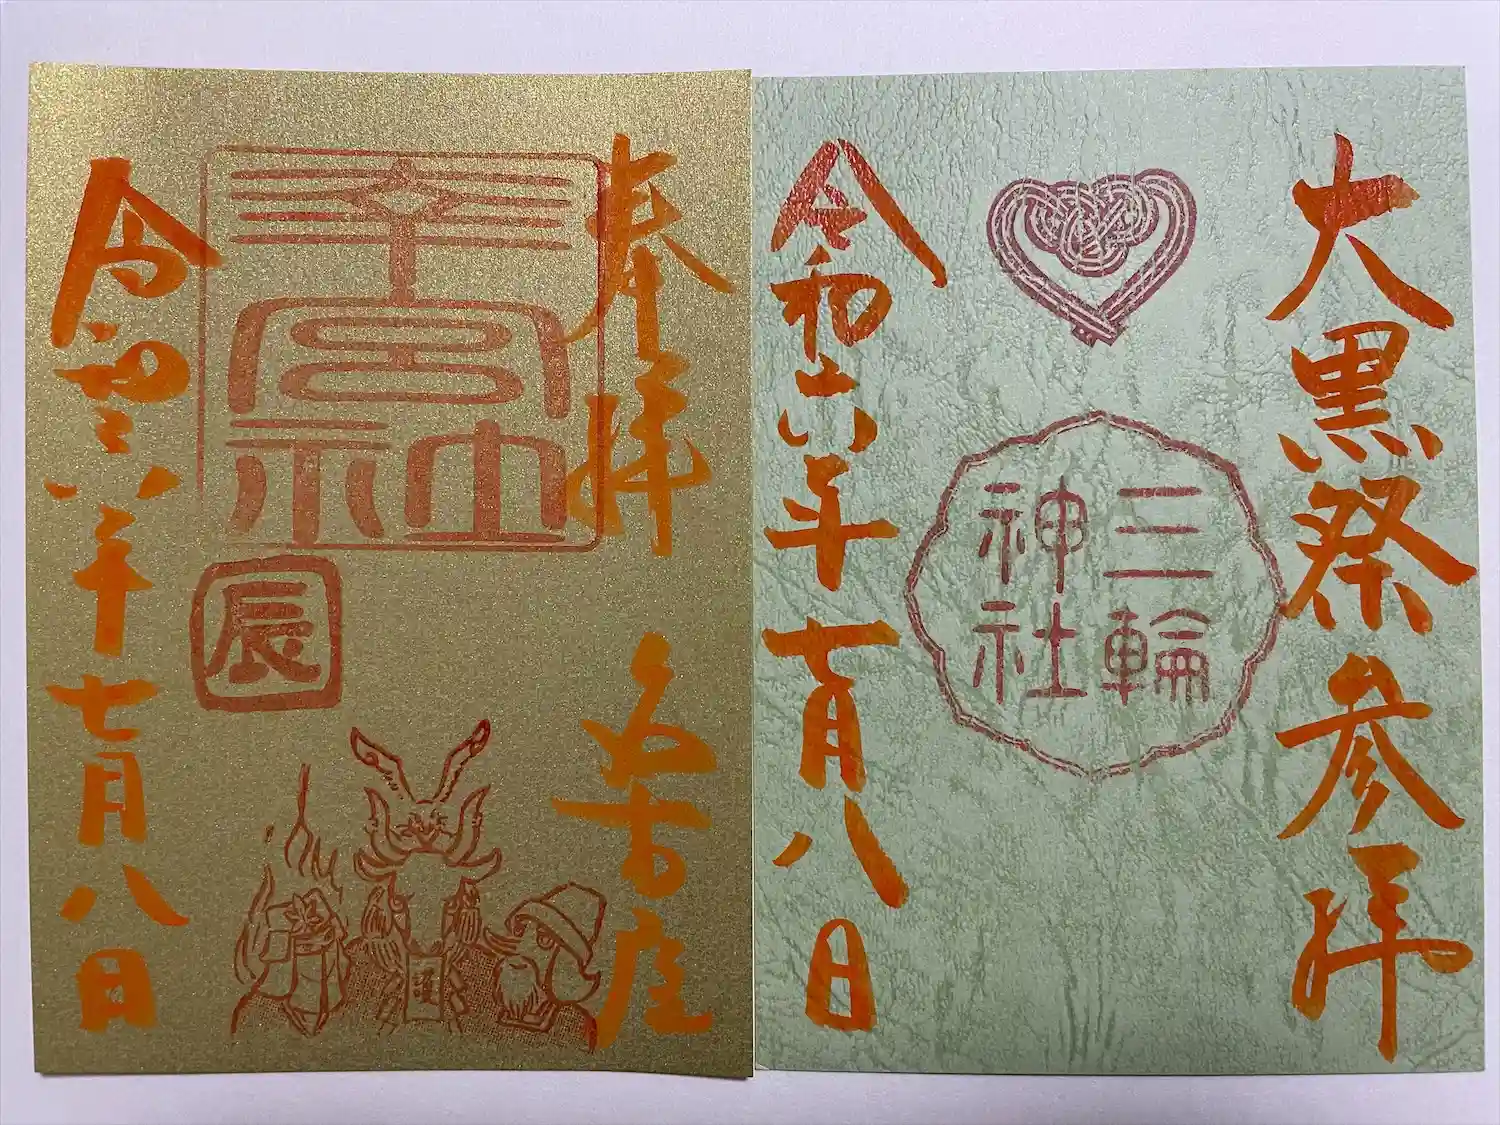 大黒祭参拝
三輪
神社
令和六年七月八日
奉拝 名古屋
幸宮社
辰
令和六年七月八日